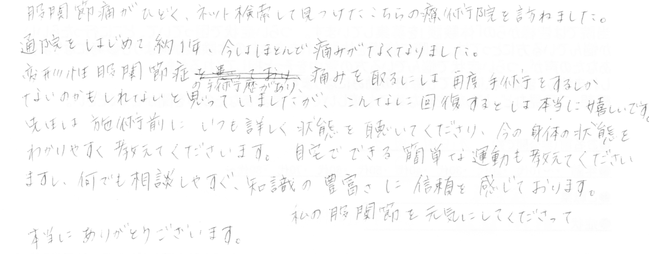 股関節痛がひどく、ネット検索して見つけたこちらの療術院を訪ねました。
通院をしはじめて約1年、今はほとんど痛みがなくなりました。
股関節症
の手術歴があり、痛みを取るには再度手術をするしか
ないのかもしれないと思っていましたが、こんなに回復するとは本当に嬉しいです。
先生は施術前にいつも詳しく状態を聴いてくださり、今の身体の状態を
わかりやすく教えてくださいます。自宅でできる簡単な運動も教えてください
ますし、何でも相談しやすく、知識の豊富さに信頼を感じております。
私の股関節を元気にしてくださって
本当にありがとうございます。